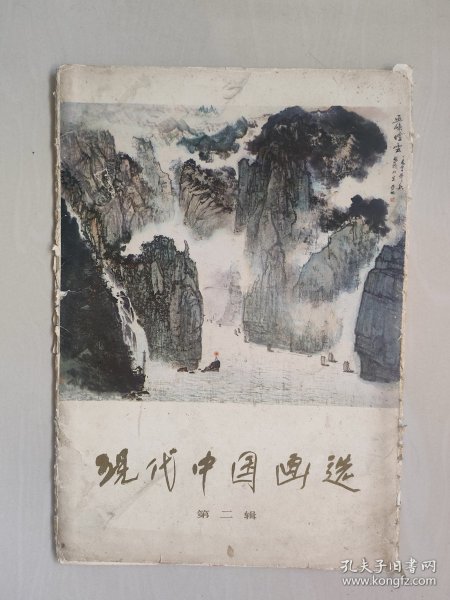 巫峡烟云
现代中国画选
第二辑
孔夫子旧书网
www.kongfz.com